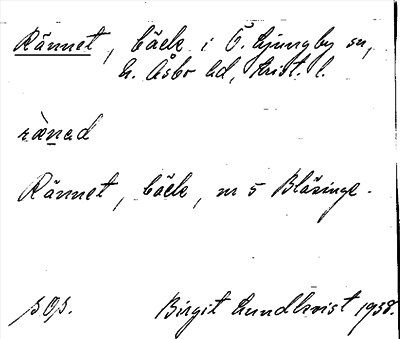 Rännet, bäck i Ö. Ljungby sn,
N. Åsbo hd, Krist. l.
rænəd
Rännet, bäck, nr 5 Bläsinge.
Birgit Lundkvist 1938.